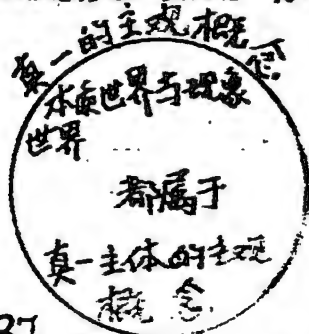 真一的主观概念
本象世界与现象
世界
都属于
真一主体的主观
概念
37